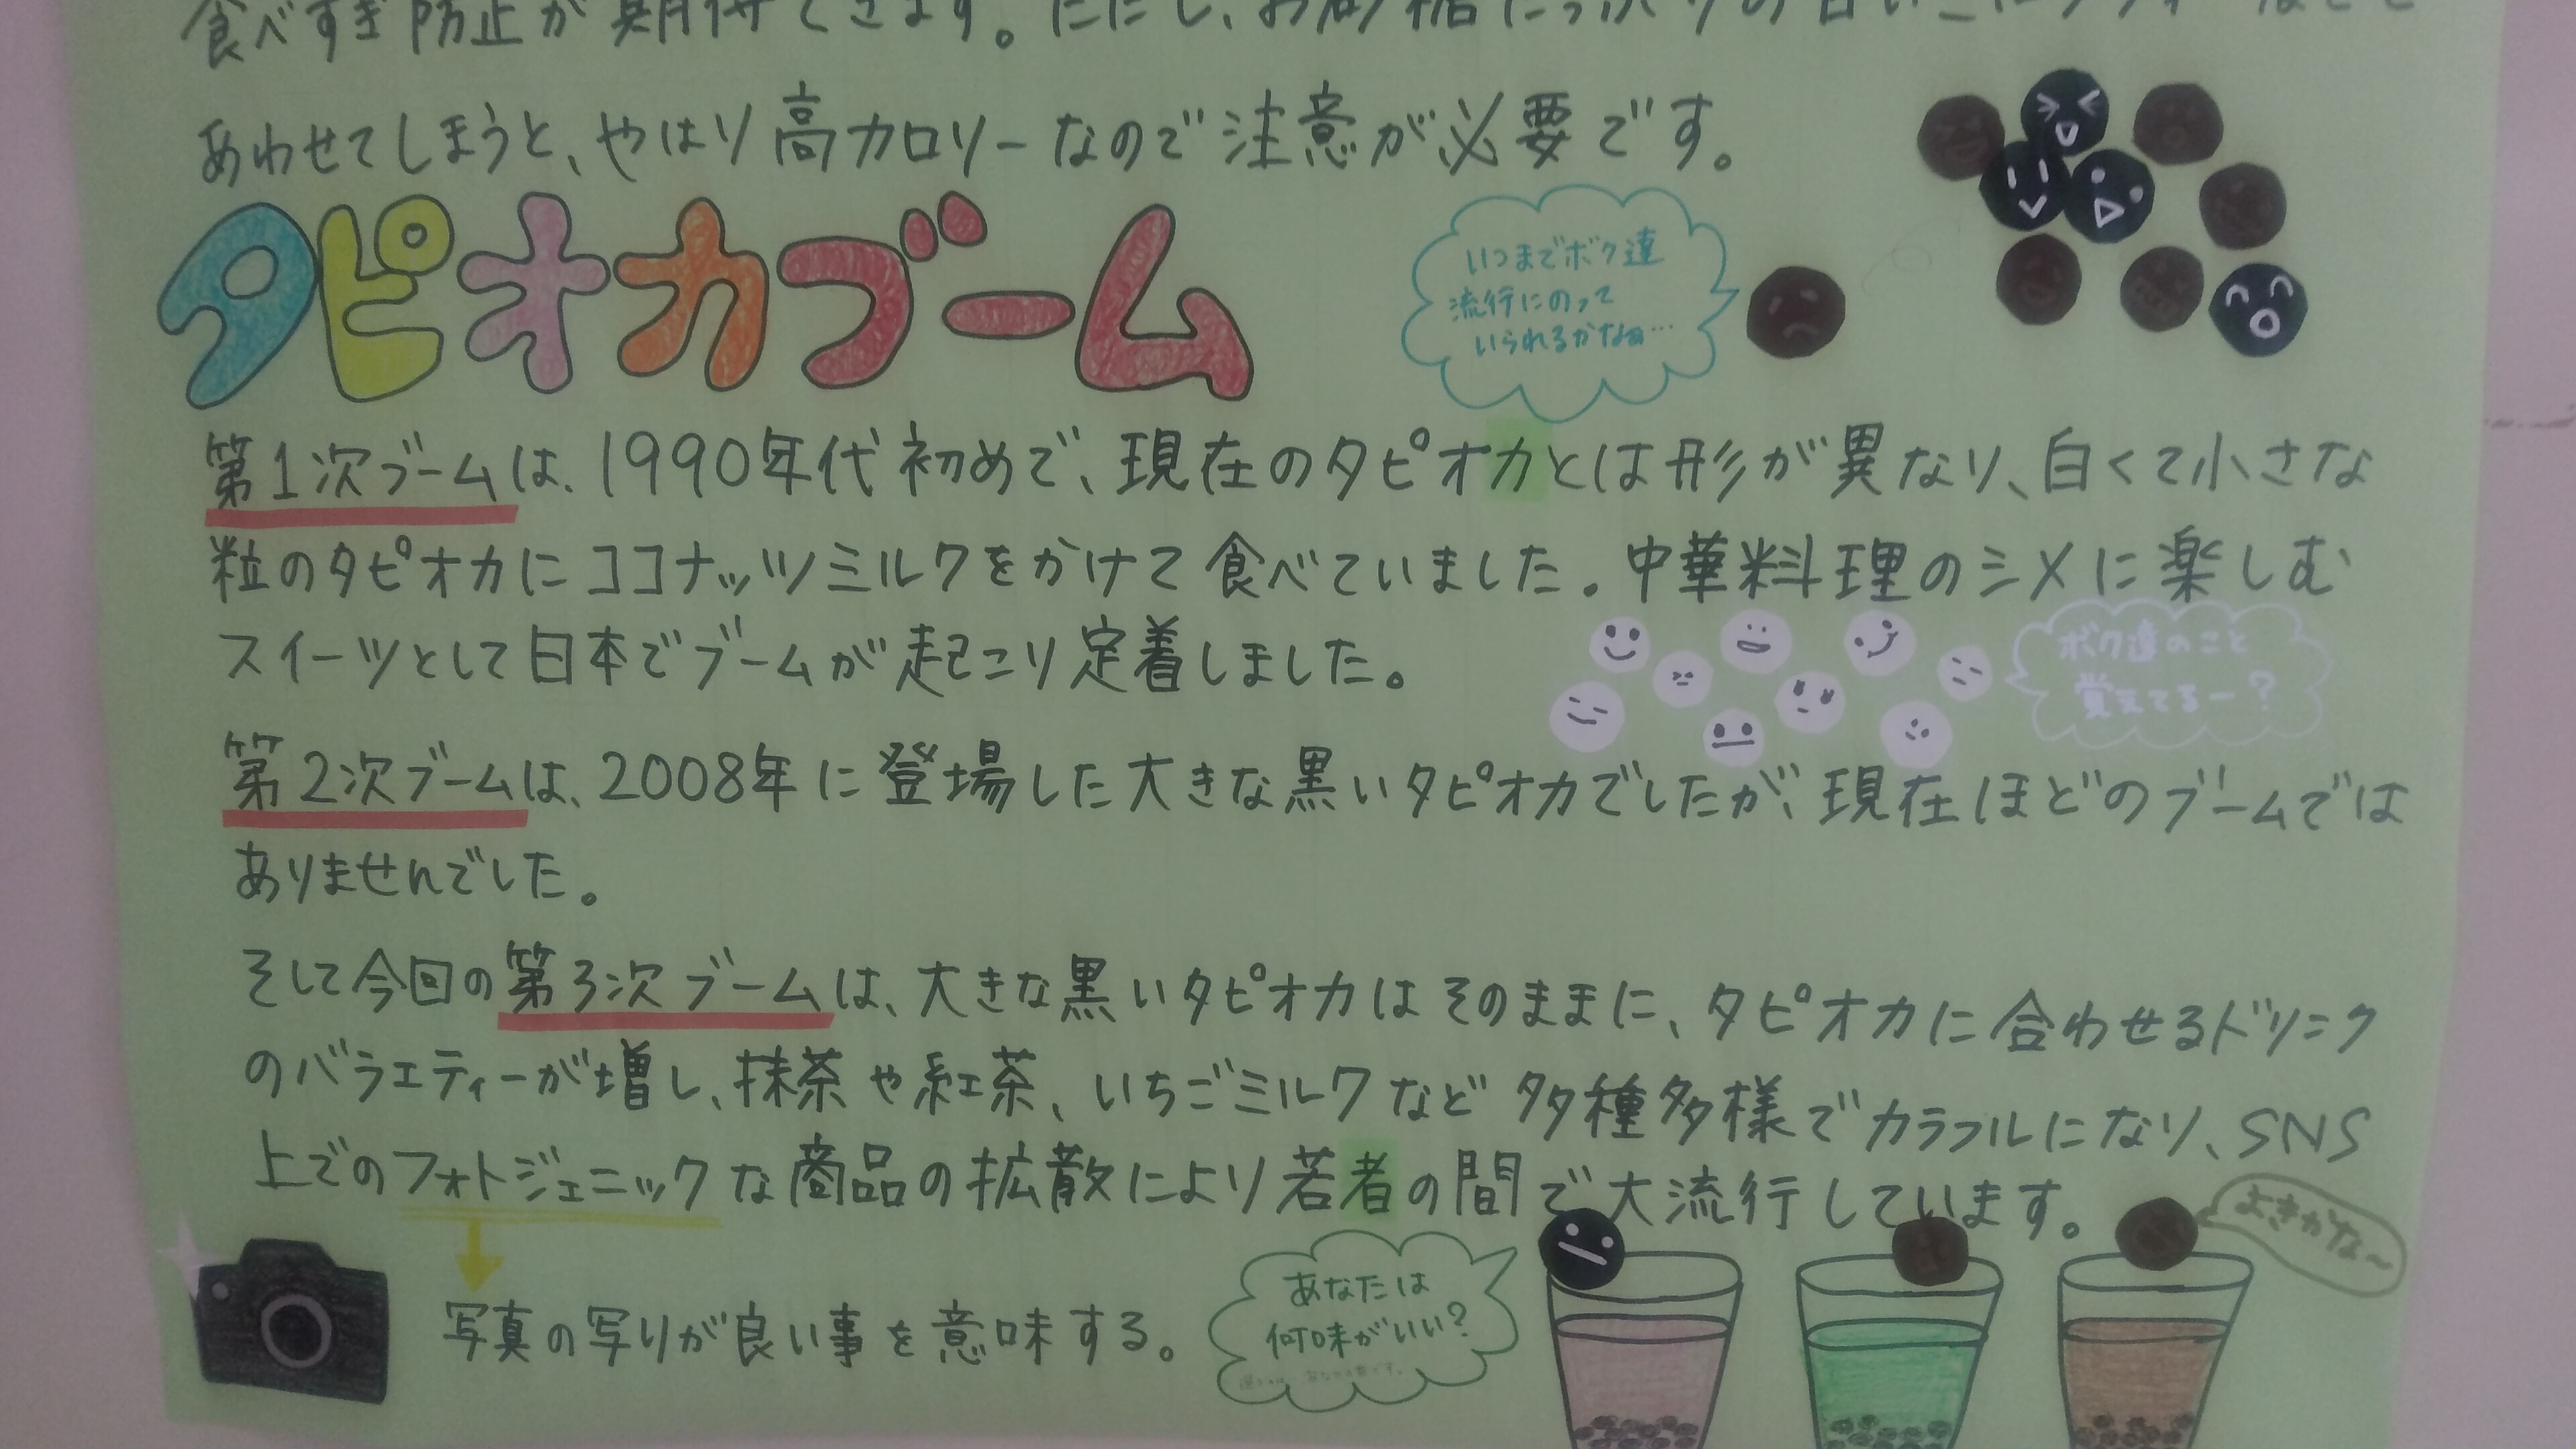 食べすぎ防止が期待できます。ただし、お砂糖たっぷりの
あわせてしまうと、やはり高カロリーなので注意が必要です。
タピオカブーム
いつまでボク達
流行にのって
いられるかなぁ…
第1次ブームは、1990年代初めで、現在のタピオカとは形が異なり、白くて小さな
粒のタピオカにココナッツミルクをかけて食べていました。中華料理のシメに楽しむ
スイーツとして日本でブームが起こり定着しました。
ボク達のこと
覚えてるー?
第2次ブームは、2008年に登場した大きな黒いタピオカでしたが、現在ほどのブームでは
ありませんでした。
そして今回の第3次ブームは、大きな黒いタピオカはそのままに、タピオカに合わせるドリンク
のバラエティーが増し、抹茶や紅茶、いちごミルクなど多種多様でカラフルになり、SNS
上でのフォトジェニックな商品の拡散により若者の間で大流行しています。
よきかな〜
写真の写りが良い事を意味する。
あなたは
何味がいい?